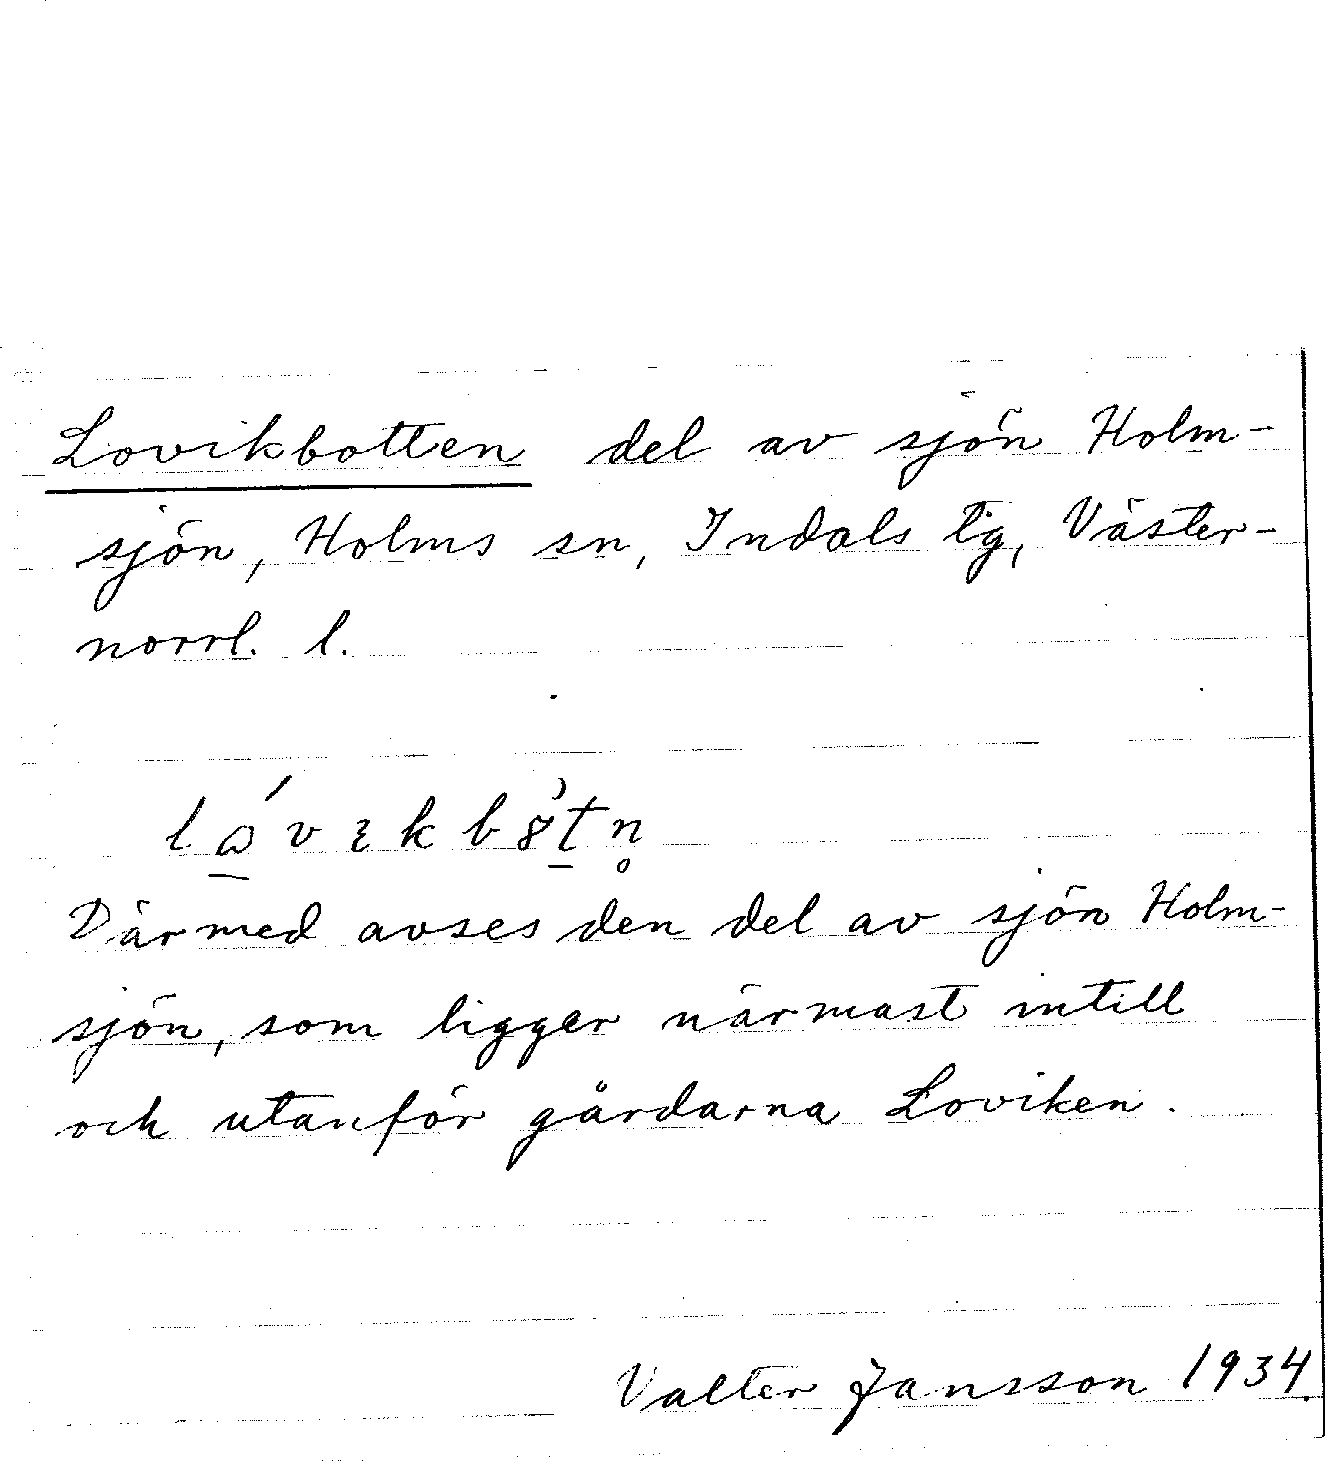 Lovikbotten del av sjön Holm-
sjön, Holms sn, Indals tg, Väster-
norrl. l.
Därmed avses den del av sjön Holm-
sjön, som ligger närmast intill
och utanför gårdarna Loviken.
Valter Jansson 1934.